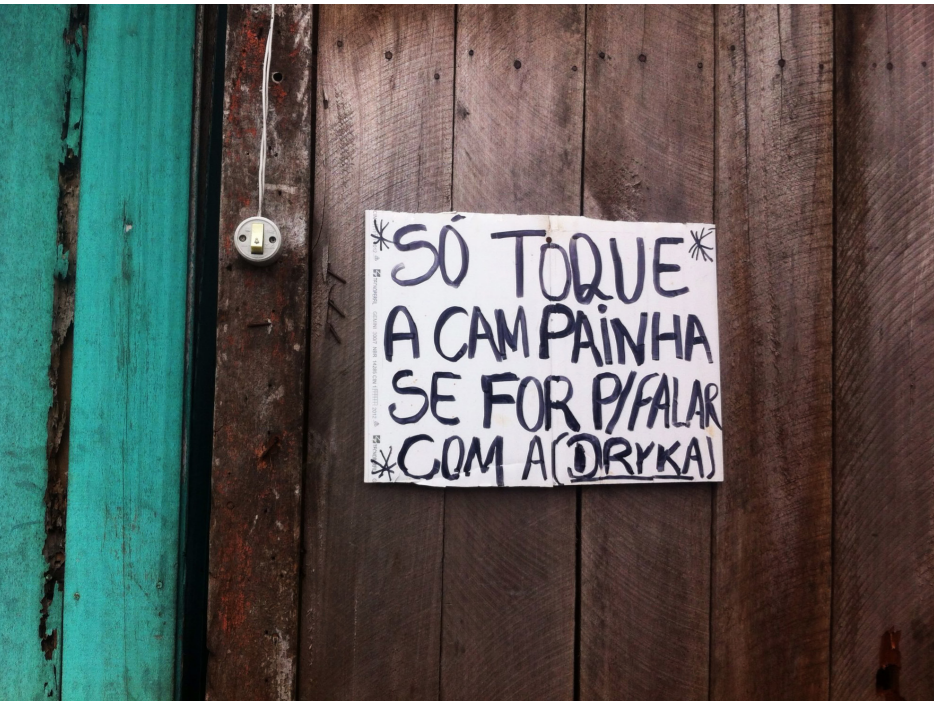 *SÓ TOQUE*
A CAMPAINHA
SE FOR P/FALAR
*COM A(DRYKA)